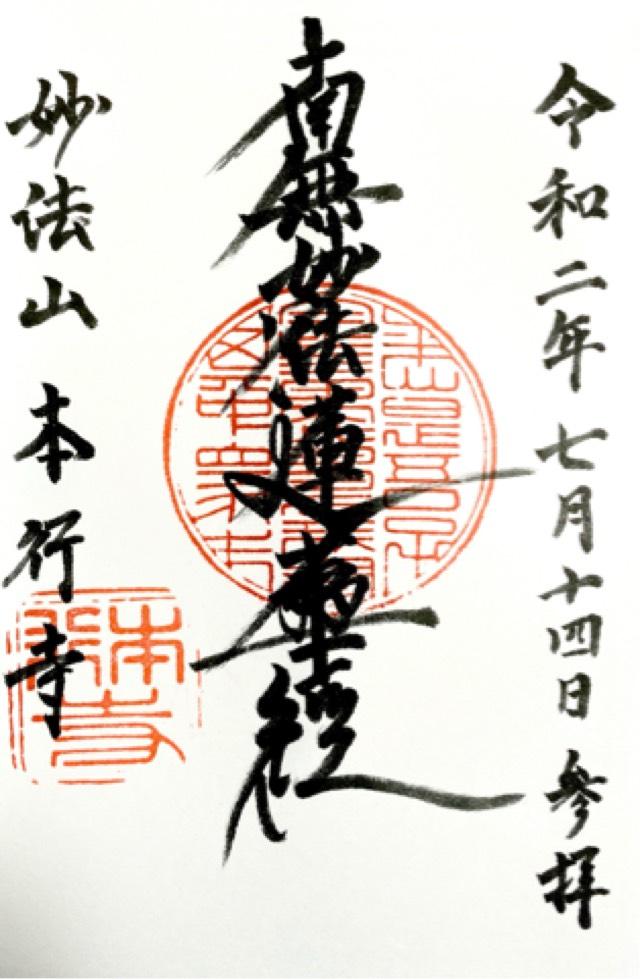 令和二年七月十四日 参拝
南無妙法蓮華経
妙法山 本行寺
本行寺